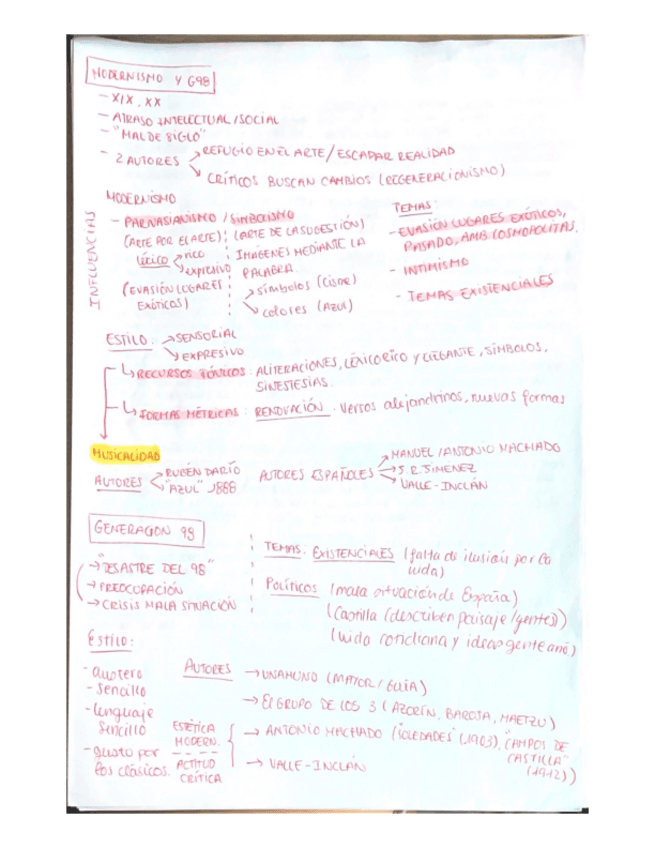 MODERNISMO Y G98
- XIX. XX
- ATRASO INTELECTUAL/SOCIAL
- "MAL DE SIGLO"
- 2 AUTORES → REFUGIO EN EL ARTE/ESCAPAR REALIDAD
→ CRÍTICOS BUSCAN CAMBIOS (REGENERACIONISMO)
MODERNISMO
INFLUENCIAS
- PARNASIANISMO / SIMBOLISMO
(ARTE POR EL ARTE) (ARTE DE LA SUGESTIÓN)
léxico → rico
→ expresivo
IMÁGENES MEDIANTE LA
PALABRA.
(EVASIÓN LUGARES
EXÓTICOS)
→ símbolos (cisne)
→ colores (AZUL)
TEMAS:
- EVASIÓN LUGARES EXÓTICOS,
PASADO, AMB COSMOPOLITAS.
- INTIMISMO
- TEMAS EXISTENCIALES
ESTILO. → SENSORIAL
→ EXPRESIVO
→ RECURSOS : ALITERACIONES, LÉXICO RICO Y ELEGANTE, SÍMBOLOS,
SINESTESIAS.
→ FORMAS MÉTRICAS : RENOVACIÓN. Versos alejandrinos, nuevas formas
MUSICALIDAD
AUTORES → RUBÉN DARÍO
→ "AZUL" 1888
AUTORES ESPAÑOLES → MANUEL/ANTONIO MACHADO
→ J.R. JIMENEZ
→ VALLE-INCLÁN
GENERACION 98
→ "DESASTRE DEL 98"
→ PREOCUPACIÓN
→ CRISIS MALA SITUACIÓN
TEMAS. EXISTENCIALES (falta de ilusión por la
vida)
Políticos (mala situación de España)
(Castilla (describen paisaje/gentes))
(vida cotidiana y ideas gente)
Estilo:
- austero
- Sencillo
- lenguaje
Sencillo
- gusto por
los clásicos.
AUTORES → UNAMUNO (MAYOR/GUÍA)
→ El GRUPO DE LOS 3 (AZORÍN, BAROJA, MAETZU)
ESTÉTICA
MODERN.
ACTITUD
CRÍTICA
→ ANTONIO MACHADO ("SOLEDADES" (1903), "CAMPOS DE
CASTILLA"
(1912))
→ VALLE-INCLÁN